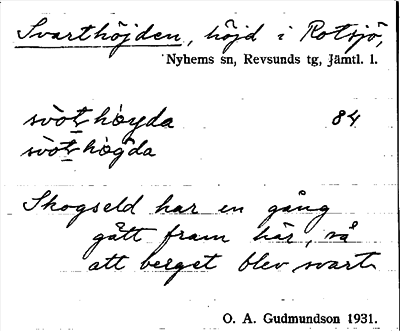 Svarthöjden, höjd i Rotsjö,
Nyhems sn, Revsunds tg, Jämtl. l.
84
Skogseld har en gång
gått fram här, så
att berget blev svart
O. A. Gudmundson 1931.